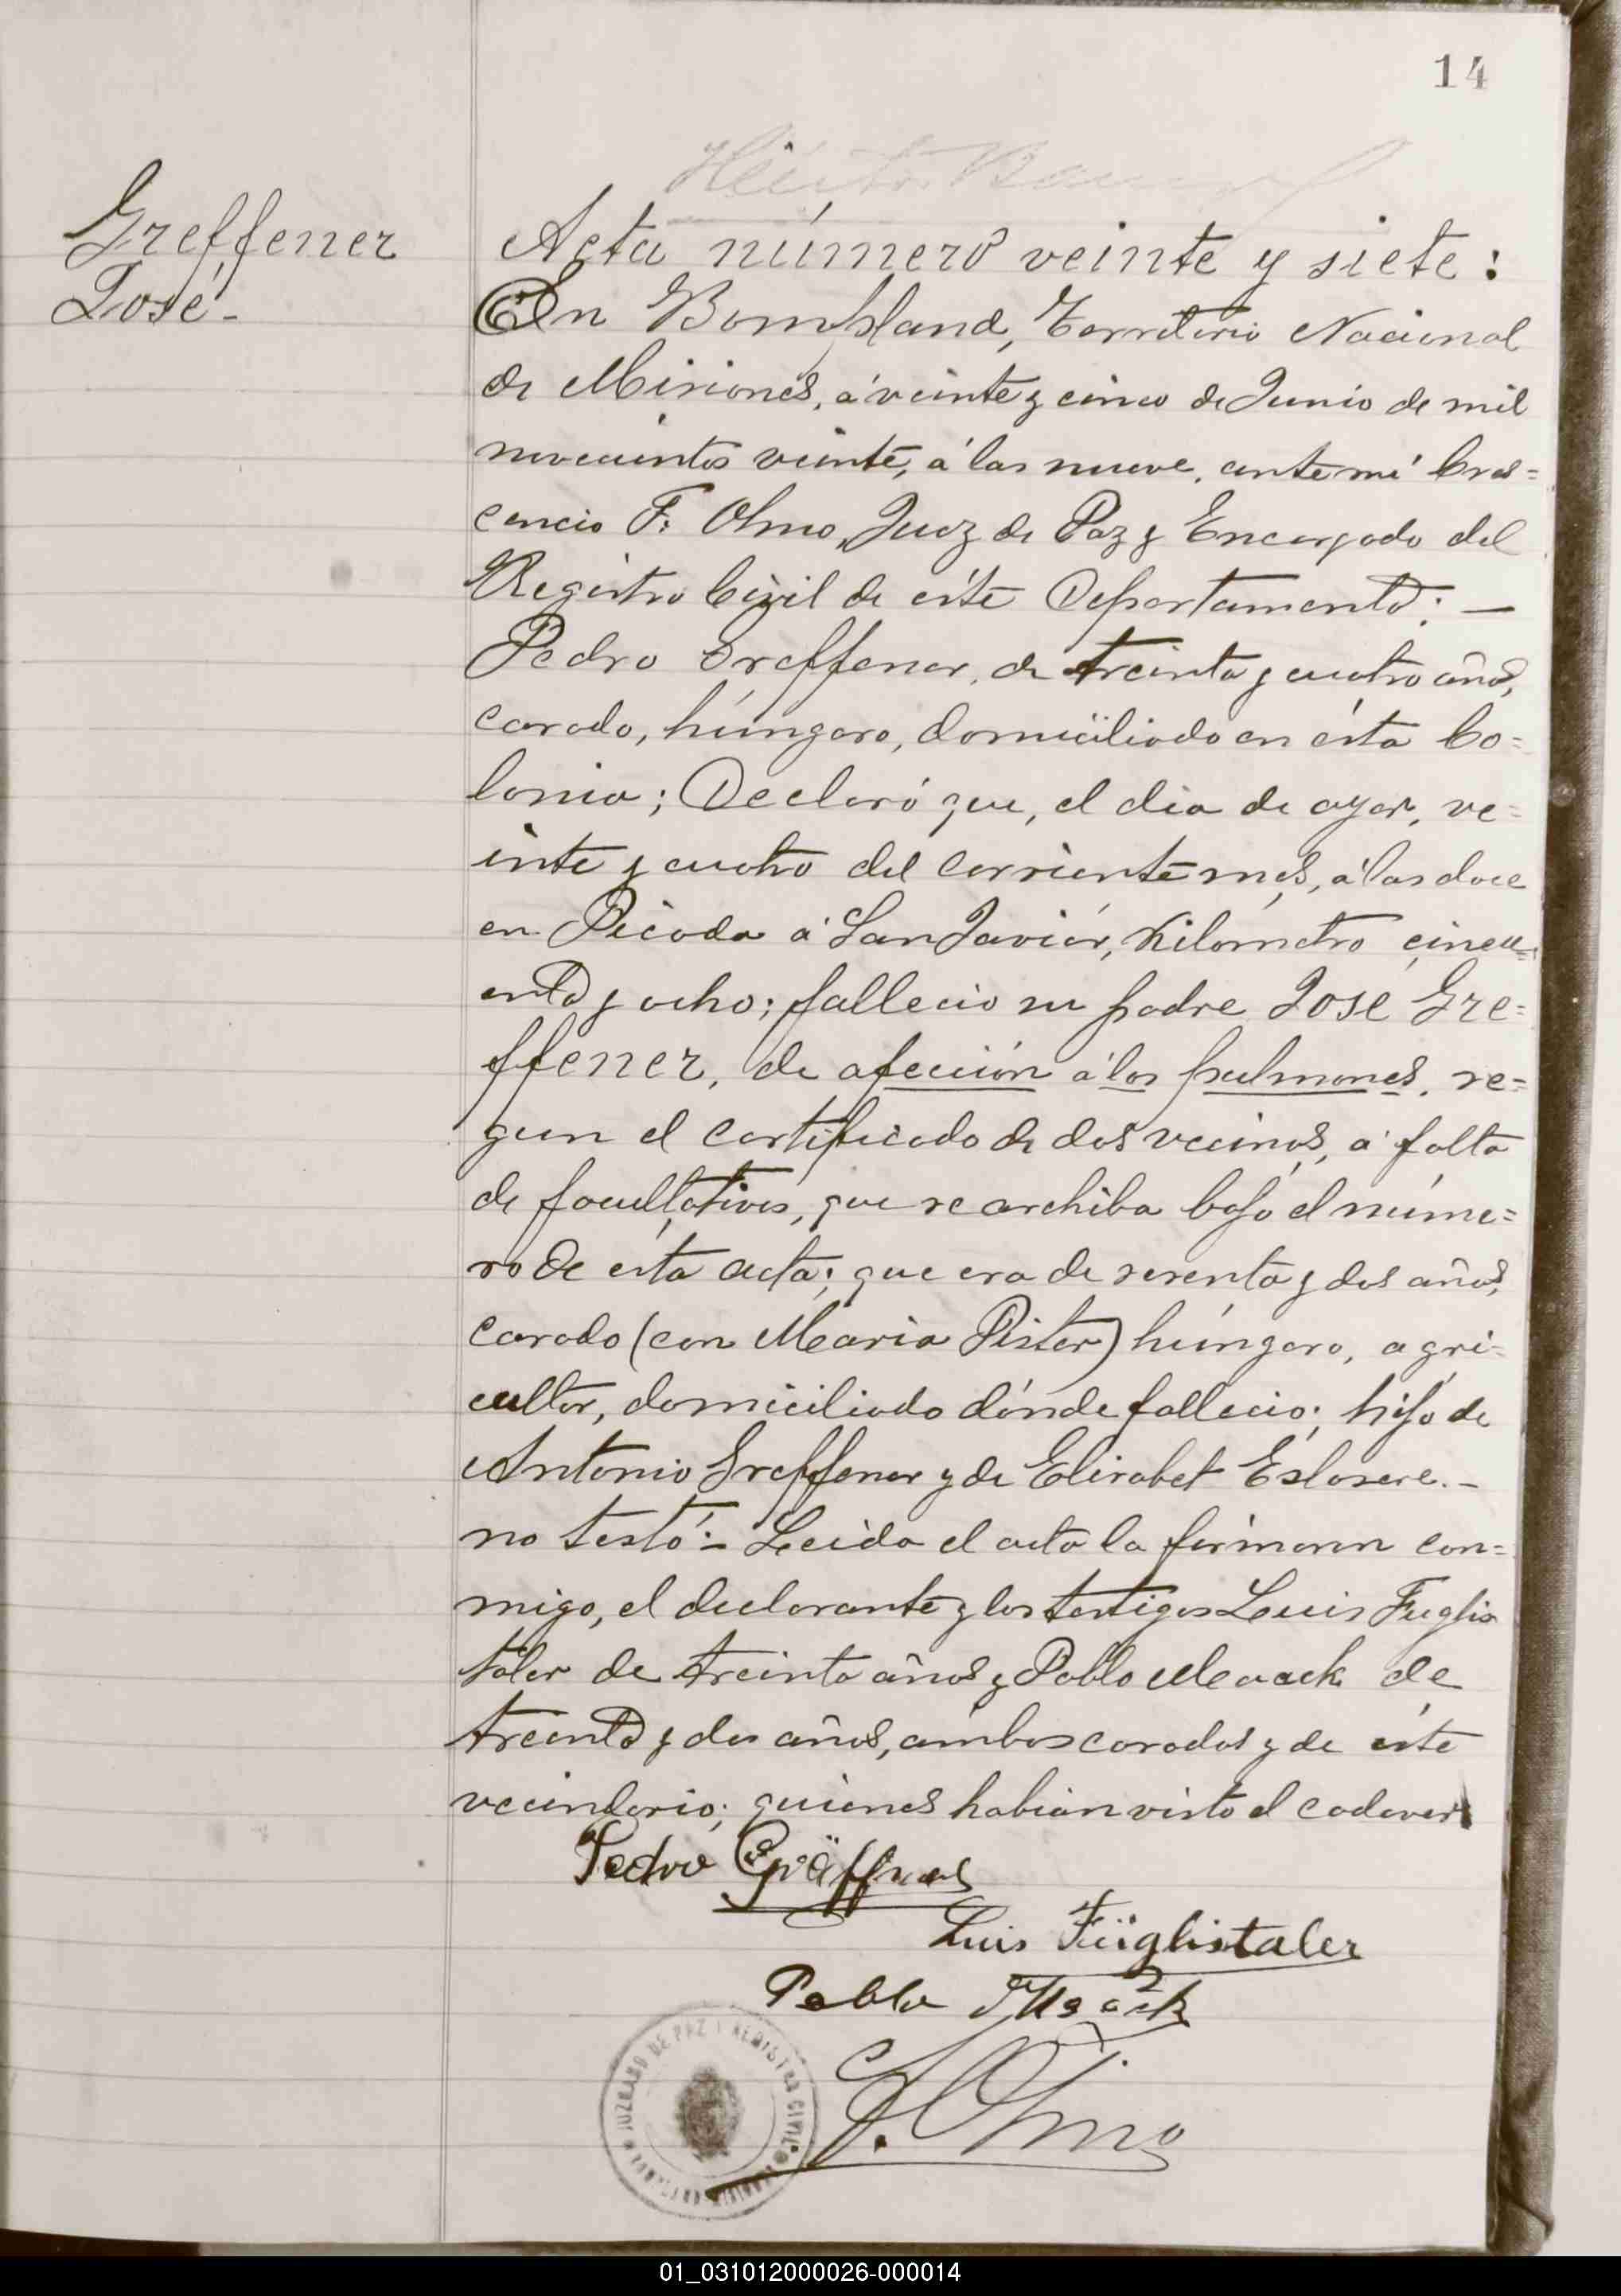 14
Greffener
José.-
Acta número veinte y siete:
En Bompland, Territorio Nacional
de Misiones, á veinte y cinco de Junio de mil
novecientos veinte, á las nueve, ante mí Cres=
cencio F. Olmo, Juez de Paz y Encargado del
Registro Civil de éste Departamento: —
Pedro Greffener, de treinta y cuatro años,
casado, húngaro, domiciliado en ésta Co=
lonia; Declaró que, el dia de ayer, ve=
inte y cuatro del corriente mes, á las doce
en Picada á San Javiér, kilómetro cincu=
enta y ocho; fallecio su padre José Gre=
ffener, de afección á los pulmones, se=
gun el certificado de dos vecinos, á falta
de facultativos, que se archiba bajo el núme=
ro de esta acta; que era de sesenta y dos años,
casado (con Maria Pister) húngaro, agri=
cultor, domiciliado dónde fallecio; hijo de
Antonio Greffener y de Elisabet Eslosere.-
no testó:- Leida el acta la firmaron con=
migo, el declarante y los testigos Luis Fuglis
taler de treinta años y Pablo de
treinta y dos años, ambos casados y de éste
vecindario; quienes habian visto el cadaver
Pedro Gräffner
Luis Füglistaler
Pablo
F. Olmo
JUZGADO DE PAZ Y REGISTRO CIVIL
01_031012000026-000014